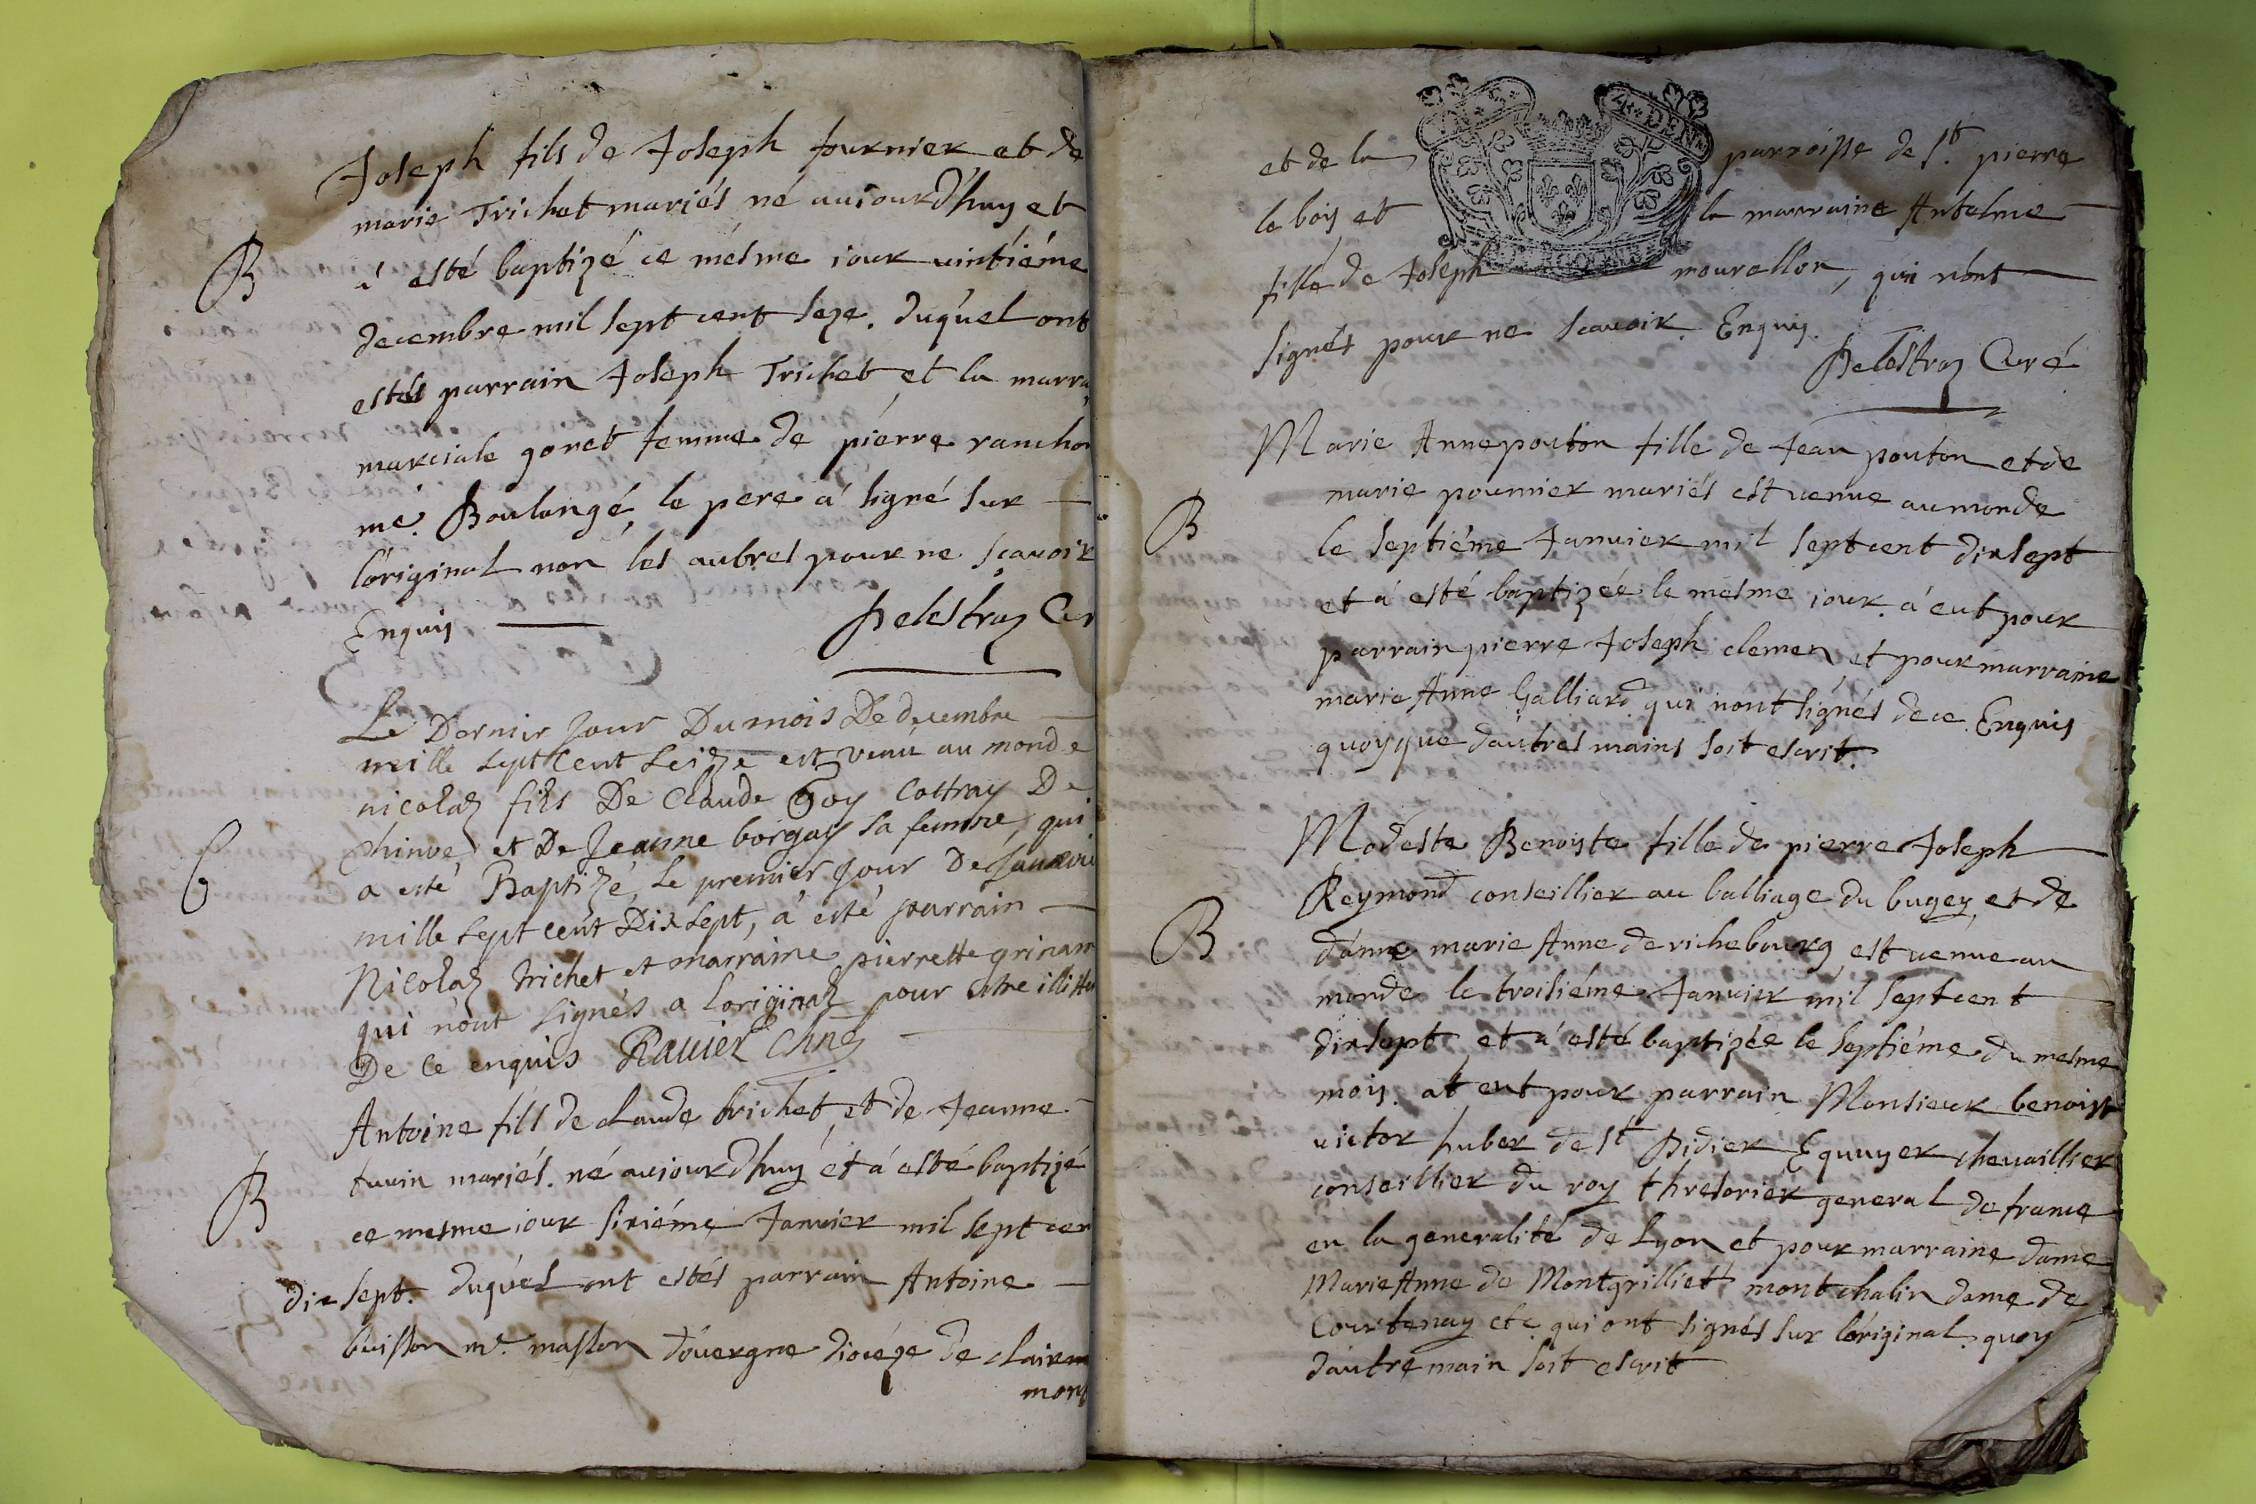 Joseph fils de Joseph fournier et de
marie Trichet mariés né auiourd'huy et
B
à esté baptizé ce mésme iour vintiéme
decembre mil sept cent seze. duquel ont
estés parrain Joseph Trichet et la marra
marciale goret femme de piérre ranchon
me. Boulangé, le pere a signé sur
l'original non les autres pour ne scavoir
Enquis Delestraz Cur
Le Dernier jour Du mois De decembre
mille sept Cent seize est venu au monde
nicolaz fils De Claude Goy Cottray De
et De Jeanne borgay sa femme, qui
B
a esté Baptizé, le premier jour De Janvie
mille sept cent Dix sept, a esté parrain
Nicolaz trichet et marraine pierrette
qui n'ont signés a Loriginaz pour estre illitte
De ce enquis Ravier
Antoine fils de claude trichet, et de Jeanne
B
mariés. né auiourdhuy et à esté baptizé
ce mesme iour sixiéme Janvier mil sept cen
dix sept. duquel ont estés parrain Antoine
buisson me. masson d'ouvergne diocéze de clair
mont
4 DEN
et de la parroisse de St. pierre
le bois et la marraine Antelme
fille de Joseph mourellon, qui n'ont
signés pour ne scavoir. Enquis.
Delestraz Curé
Marie Anne pouton fille de Jean pouton et de
marie pournier mariés est venue au monde
B
le septiéme Janvier mil sept cent dix sept
et à esté baptizée le mésme iour. à eut pour
parrain pierre Joseph clemen et pour marraine
marie Anne Galliard qui n'ont signés de ce Enquis
quoyque d'autres mains soit escrit.
Modeste Benoiste fille de pierre Joseph
Reymond conseillier au balliage du bugey, et de
B
dame marie Anne de richebourg est venue au
monde le troisiéme Janvier mil sept cent
dix sept et à esté baptizée le septiéme du mesme
mois. at eut pour parrain Monsieur benoist
victor huber de St Didier Equuyer chevaillier
conseillier du roy thresorier general de france
en la generalité de Lyon et pour marraine dame
Marie Anne de Montgrilliett montchalin dame de
Courtenay etc. qui ont signés sur l'original. quoy
d'autre main soit escrit